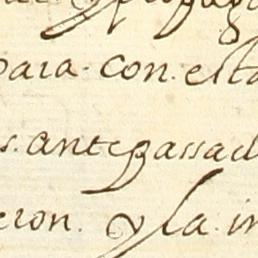 para. con. esta
s. antepassad
eron. y la. in